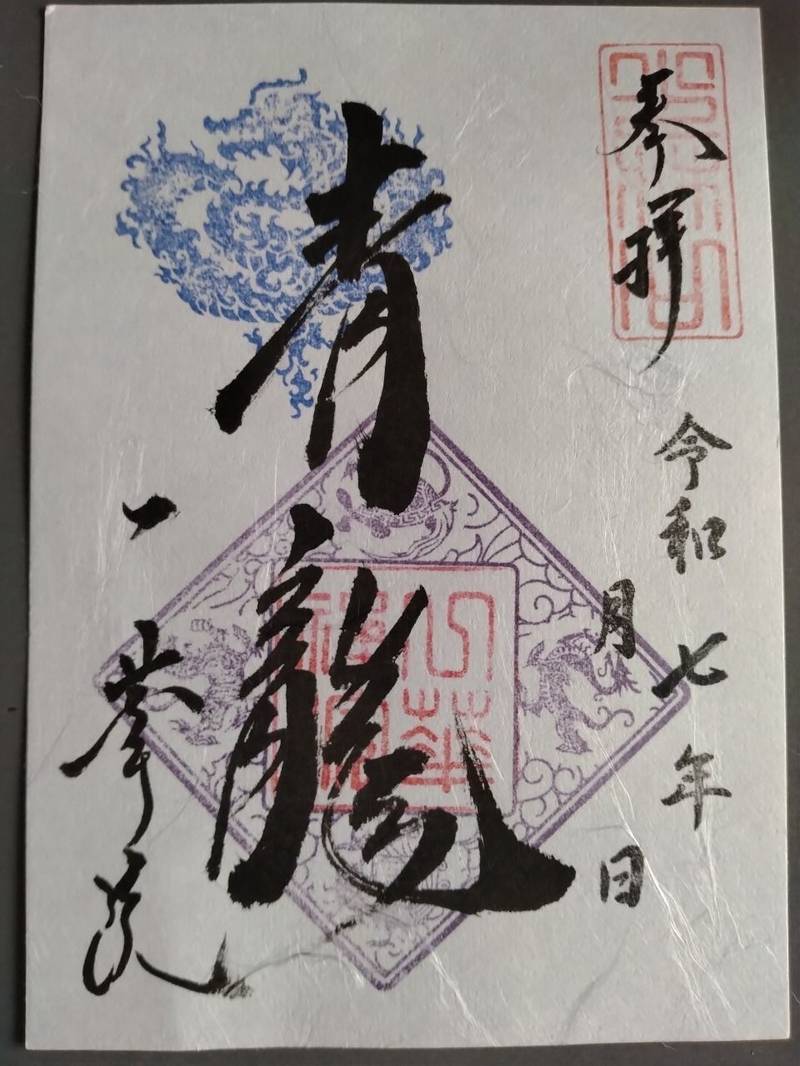 奉拝
令和七年
月 日
青龍
一華院